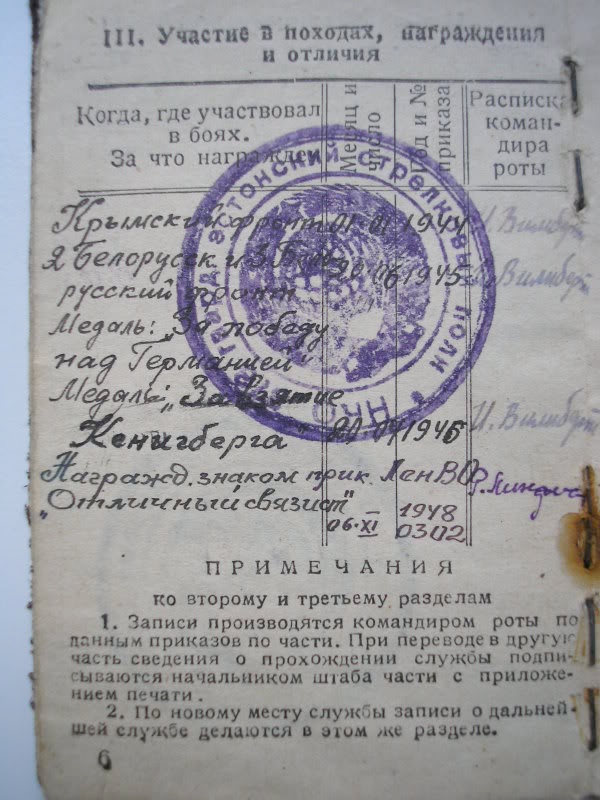 III. Участие в походах, награждения
и отличия
Когда, где участвовал
в боях.
За что награжден
Месяц и
число
Год и №
приказа
Расписка
коман-
дира
роты
Крымский фронт 01 01 1944 И. Вилиберт
2 Белорусск и 3 Бело 1945 И. Вилиберт
русский фронт
Медаль: "За победу
над Германией"
Медаль "За взятие
Кенигберга" 1946 И. Вилиберт
Награжд. знаком прик. ЛенВО
"Отличный связист" 1948
06·XI 0302
эстонский стрелковый полк * НКО
ПРИМЕЧАНИЯ
ко второму и третьему разделам
1. Записи производятся командиром роты по
данным приказов по части. При переводе в другую
часть сведения о прохождении службы подпи-
сываются начальником штаба части с приложе-
нием печати.
2. По новому месту службы записи о дальней-
шей службе делаются в этом же разделе.
6